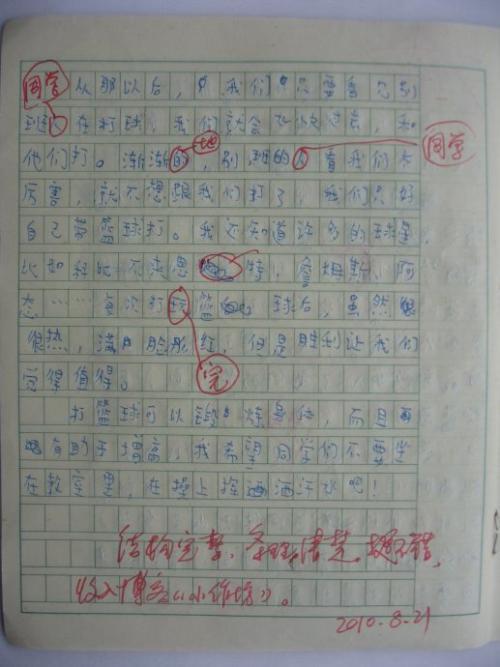 同学
从那以后，我们只要看见别
班人在打球，我们就会飞快过去，和
他们打。渐渐的，别班的人看我们太
地
同学
厉害，就不想跟我们打了，我们只好
自己带篮球打。我还知道许多的球星
比如科比 特，詹姆斯，阿
……每次打球篮 球后，虽然很
很热，满脸 红，但是胜利让我们
觉得值得。
完
打篮球可以锻炼身体，而且
有助于增高，我希望同学们不要坐
在教室里，在操上挥洒洒汗水吧！
结构完整，条理清楚。挺不错，
收入博客《小作坊》。
2010.8.21